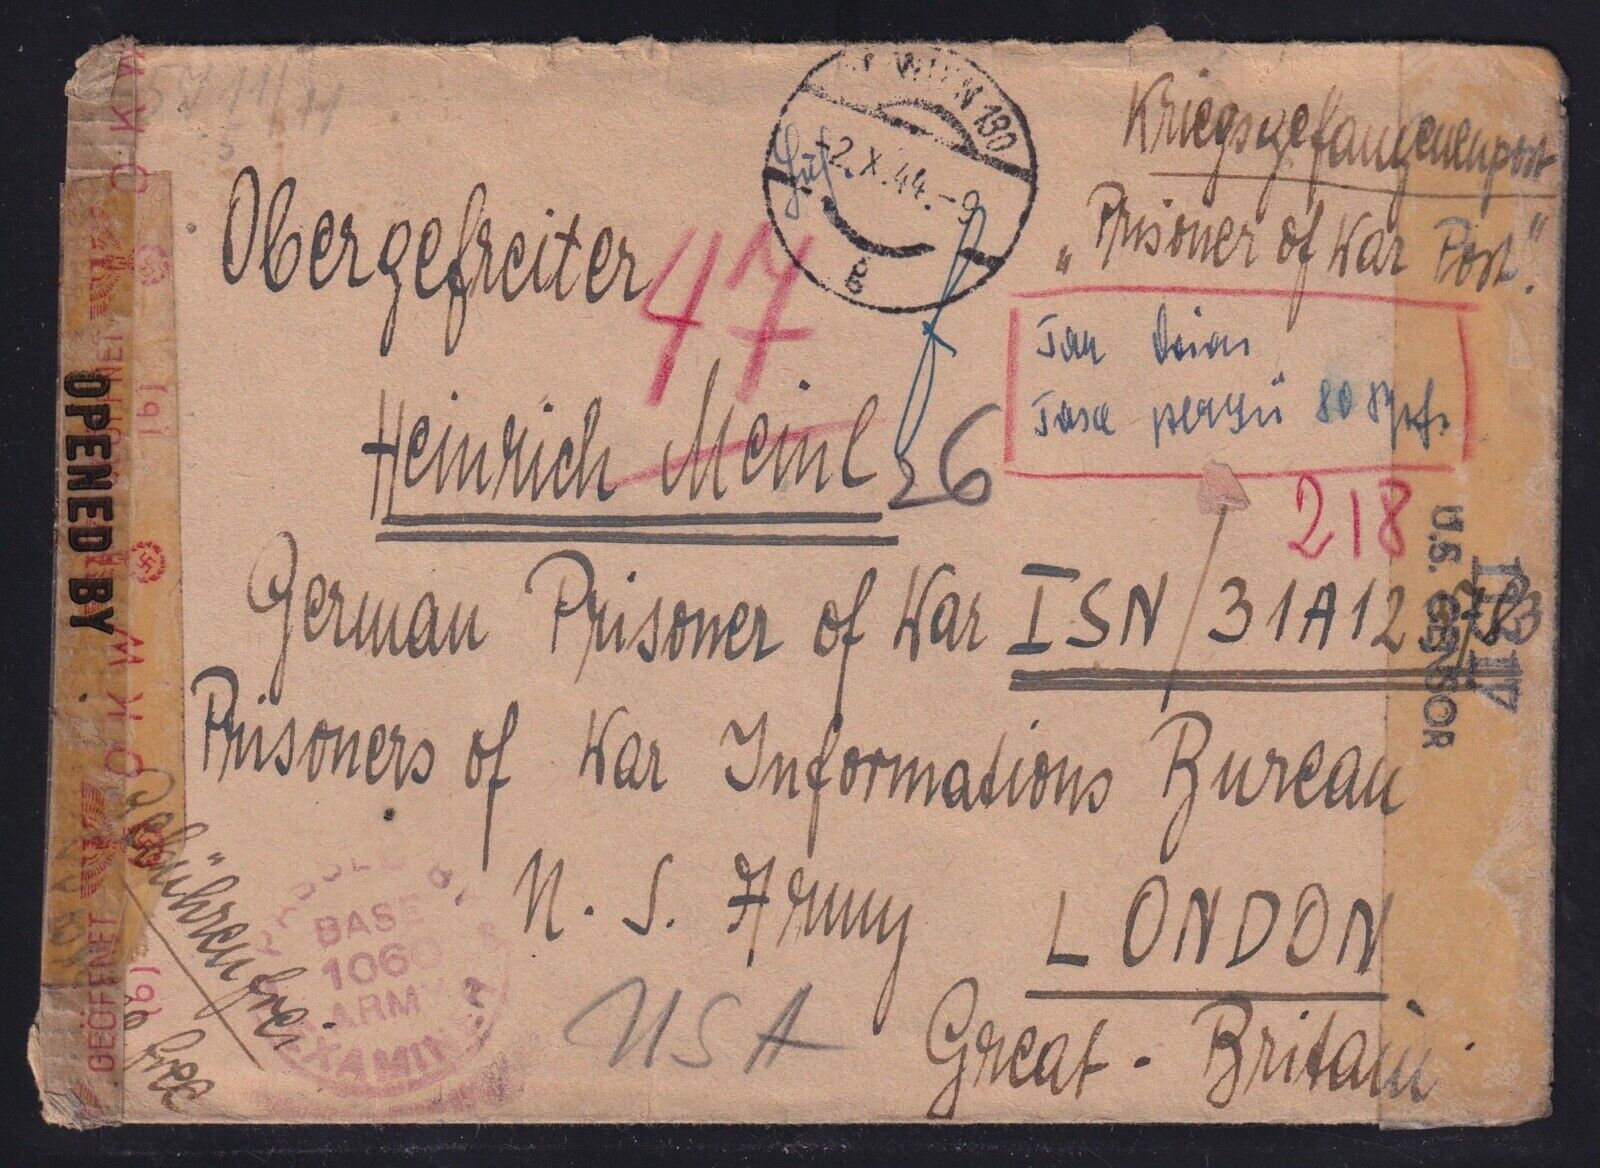 WIEN 130
-2.X.44.-9
g
Kriegsgefangenenpost
"Prisoner of War Post."
Obergefreiter
47
Heinrich Meinl
26
80
218
German Prisoner of War ISN/31A12
Prisoners of War Informations Bureau
U.S. Army
LONDON
Great-Britain
USA
Gebührenfrei
free
BASE
1060
ARMY
EXAMINER
OPENED BY
U.S. CENSOR
GEÖFFNET
OKW
OKW
OKW